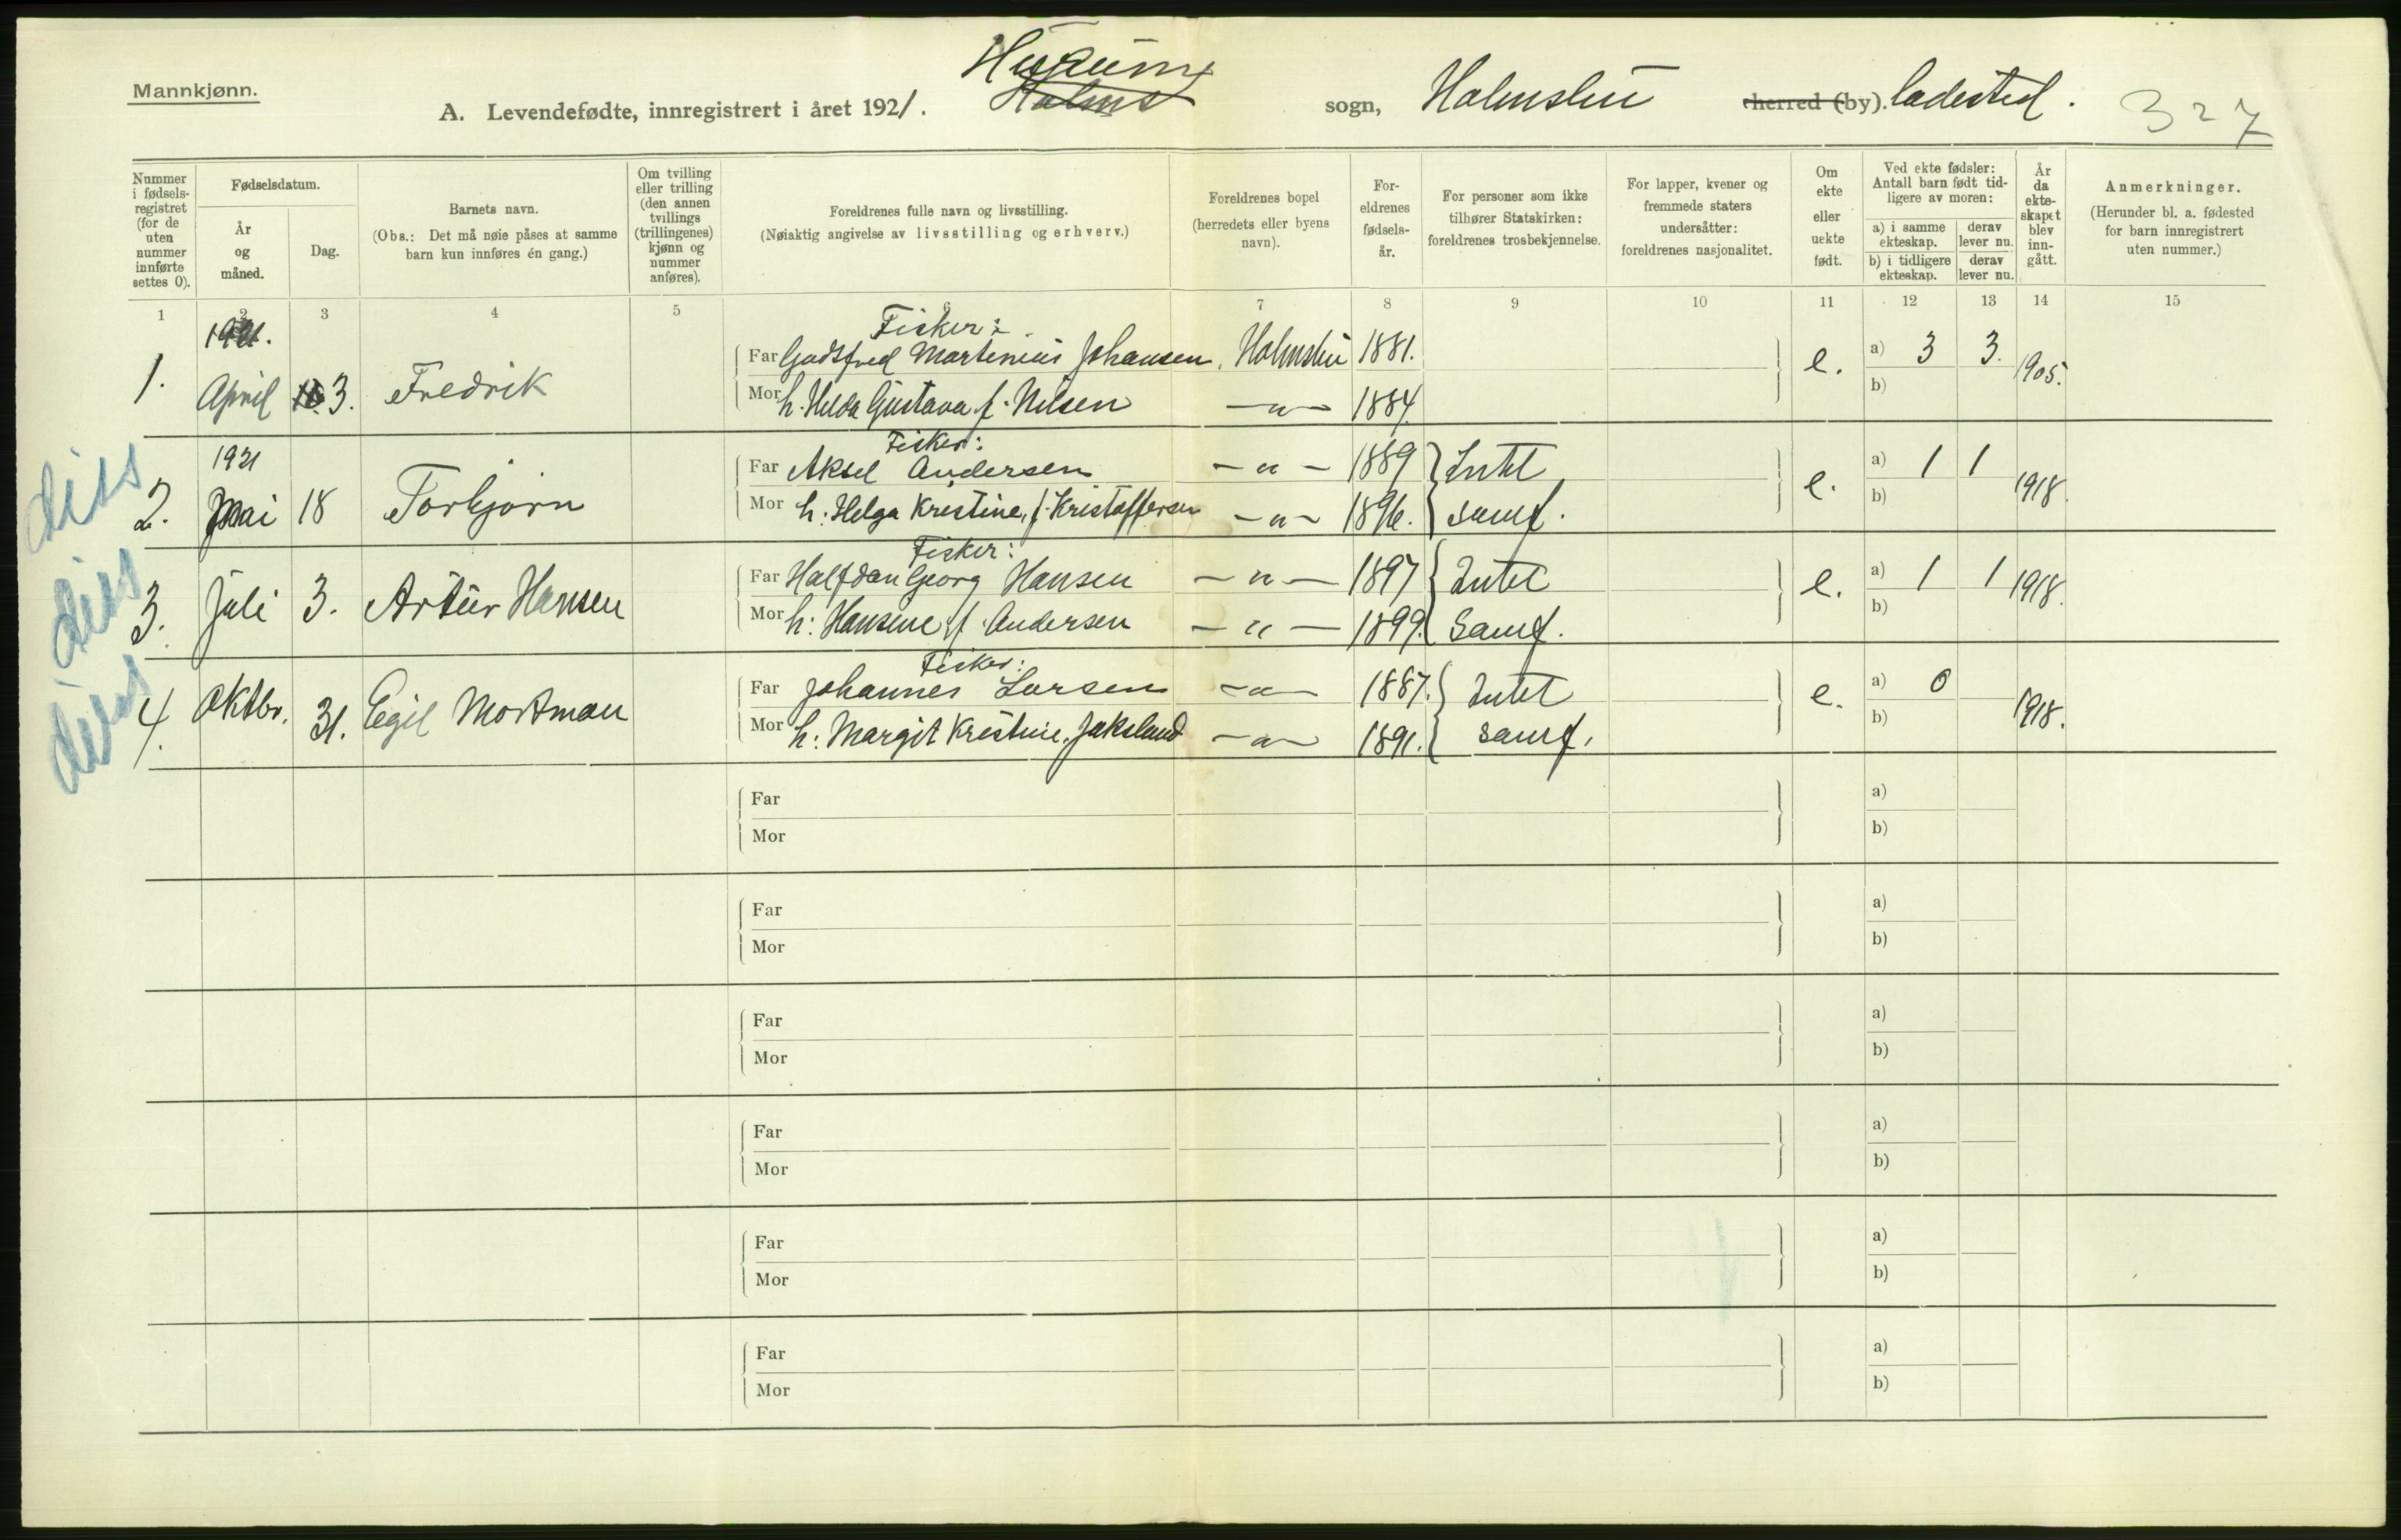 Mannkjønn.
A. Levendefødte, innregistrert i året 1921. Hurum Holms sogn, Holmsbu herred (by). ladested. 327
Nummer i fødsels-registret (for de uten nummer innførte settes 0).
Fødselsdatum.
År og måned.
Dag.
Barnets navn.
(Obs.: Det må nøie påses at samme barn kun innføres én gang.)
Om tvilling eller trilling (den annen tvillings (trillingenes) kjønn og nummer anføres).
Foreldrenes fulle navn og livsstilling.
(Nøiaktig angivelse av livsstilling og erhverv.)
Foreldrenes bopel (herredets eller byens navn).
For-eldrenes fødsels-år.
For personer som ikke tilhører Statskirken: foreldrenes trosbekjennelse.
For lapper, kvener og fremmede staters undersåtter: foreldrenes nasjonalitet.
Om ekte eller uekte født.
Ved ekte fødsler: Antall barn født tid-ligere av moren:
a) i samme ekteskap.
derav lever nu.
b) i tidligere ekteskap.
derav lever nu.
År da ekte-skapet blev inn-gått.
Anmerkninger.
(Herunder bl. a. fødested for barn innregistrert uten nummer.)
1 2 3 4 5 6 7 8 9 10 11 12 13 14 15
1921. Fisker:
1. April 3. Fredrik Far Godtfred Martinius Johansen, Holmsbu 1881. e. a) 3 3. 1905.
Mor h. Hilda Gustava f. Nilsen — " — 1884. b)
1921 Fisker:
diss 2. Mai 18 Torbjørn Far Aksel Andersen — " — 1889 Intet e. a) 1 1 1918.
Mor h: Helga Kristine, f. Kristoffersen — " — 1896. samf. b)
Fisker:
diss 3. Juli 3. Artur Hansen Far Halfdan Georg Hansen — " — 1897 Intet e. a) 1 1 1918.
Mor h: Hansine f. Andersen — " — 1899. Samf. b)
Fisker:
diss 4. Oktbr. 31. Egil Mortman Far Johannes Larsen — " — 1887. Intet e. a) 0 1918.
Mor h: Margit Kristine Jaksland — " — 1891. samf. b)
Far a)
Mor b)
Far a)
Mor b)
Far a)
Mor b)
Far a)
Mor b)
Far a)
Mor b)
Far a)
Mor b)